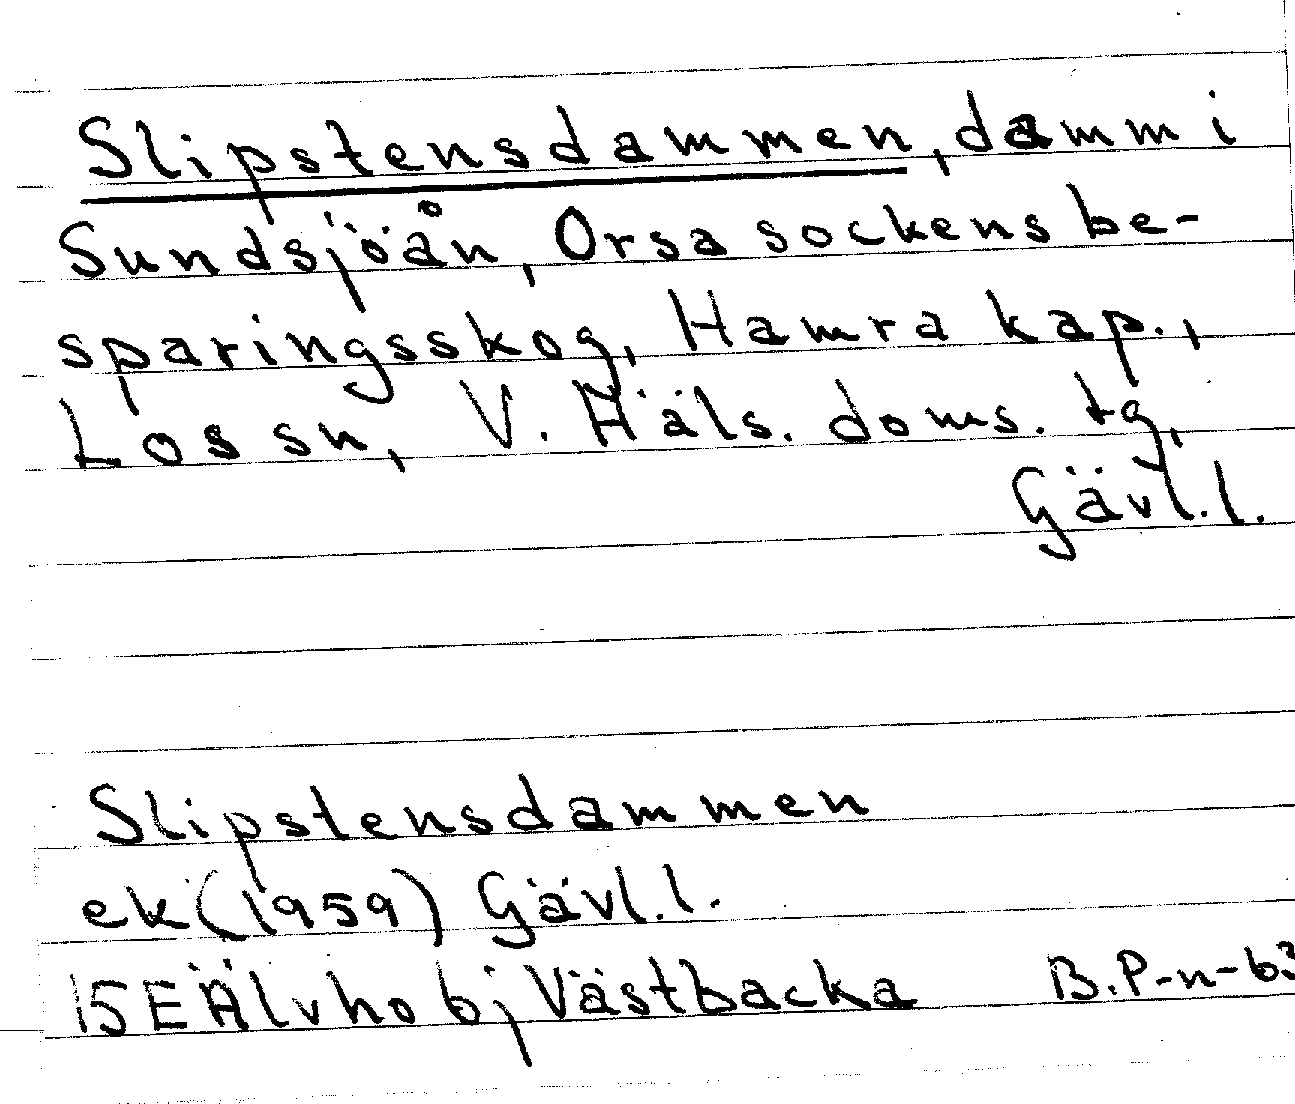 Slipstensdammen, damm i
Sundsjöån, Orsa sockens be-
sparingsskog, Hamra kap.,
Los sn, V. Häls. doms. tg,
Gävl.l.
Slipstensdammen
ek(1959) Gävl.l.
15E Älvho bj Västbacka B.P-n-63